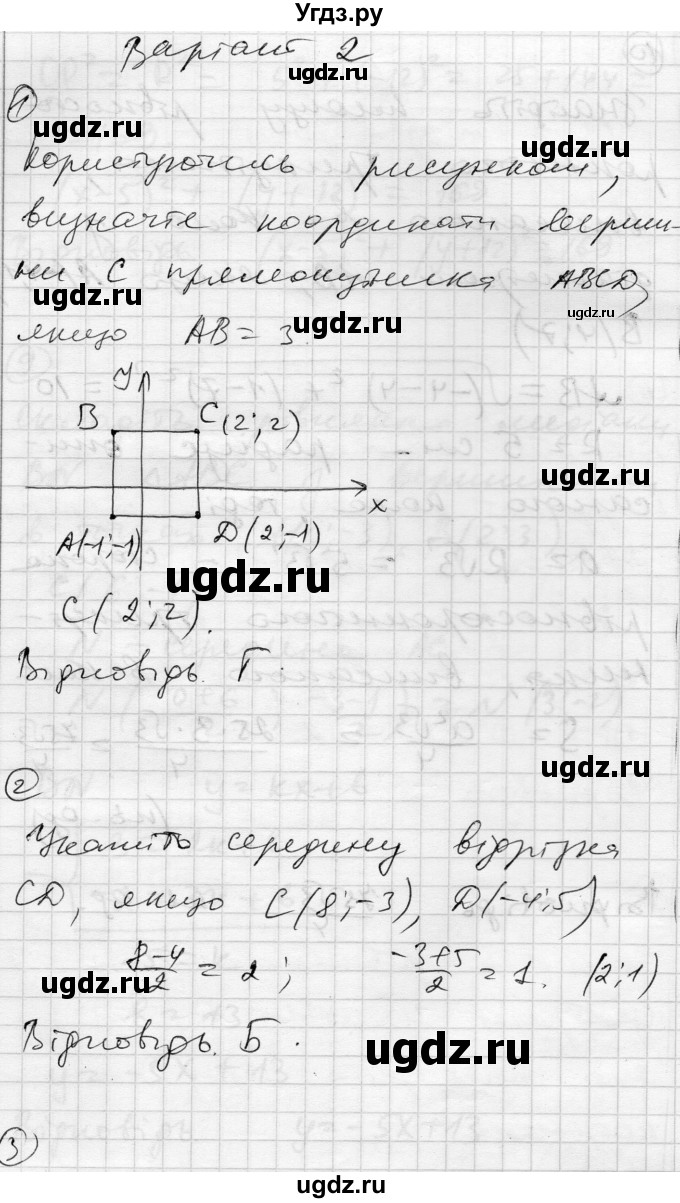 Угдз.ру
Варіант 2
ugdz.ru
1
ugdz.ru
ugdz.ru
Користуючись рисунком,
визначте координати верши-
ни C прямокутника ABCD,
ugdz.ru
ugdz.ru
якщо AB = 3.
y
B C(2; 2)
ugdz.ru
x
A(-1; -1) D(2; -1)
ugdz.ru
C(2; 2).
Відповідь. Г.
ugdz.ru
ugdz.ru
2
Укажіть середину відрізка
CD, якщо C(8; -3), D(-4; 5)
ugdz.ru
(8-4)/2 = 2; (-3+5)/2 = 1. (2; 1)
Відповідь. Б.
ugdz.ru
3
ugdz.ru